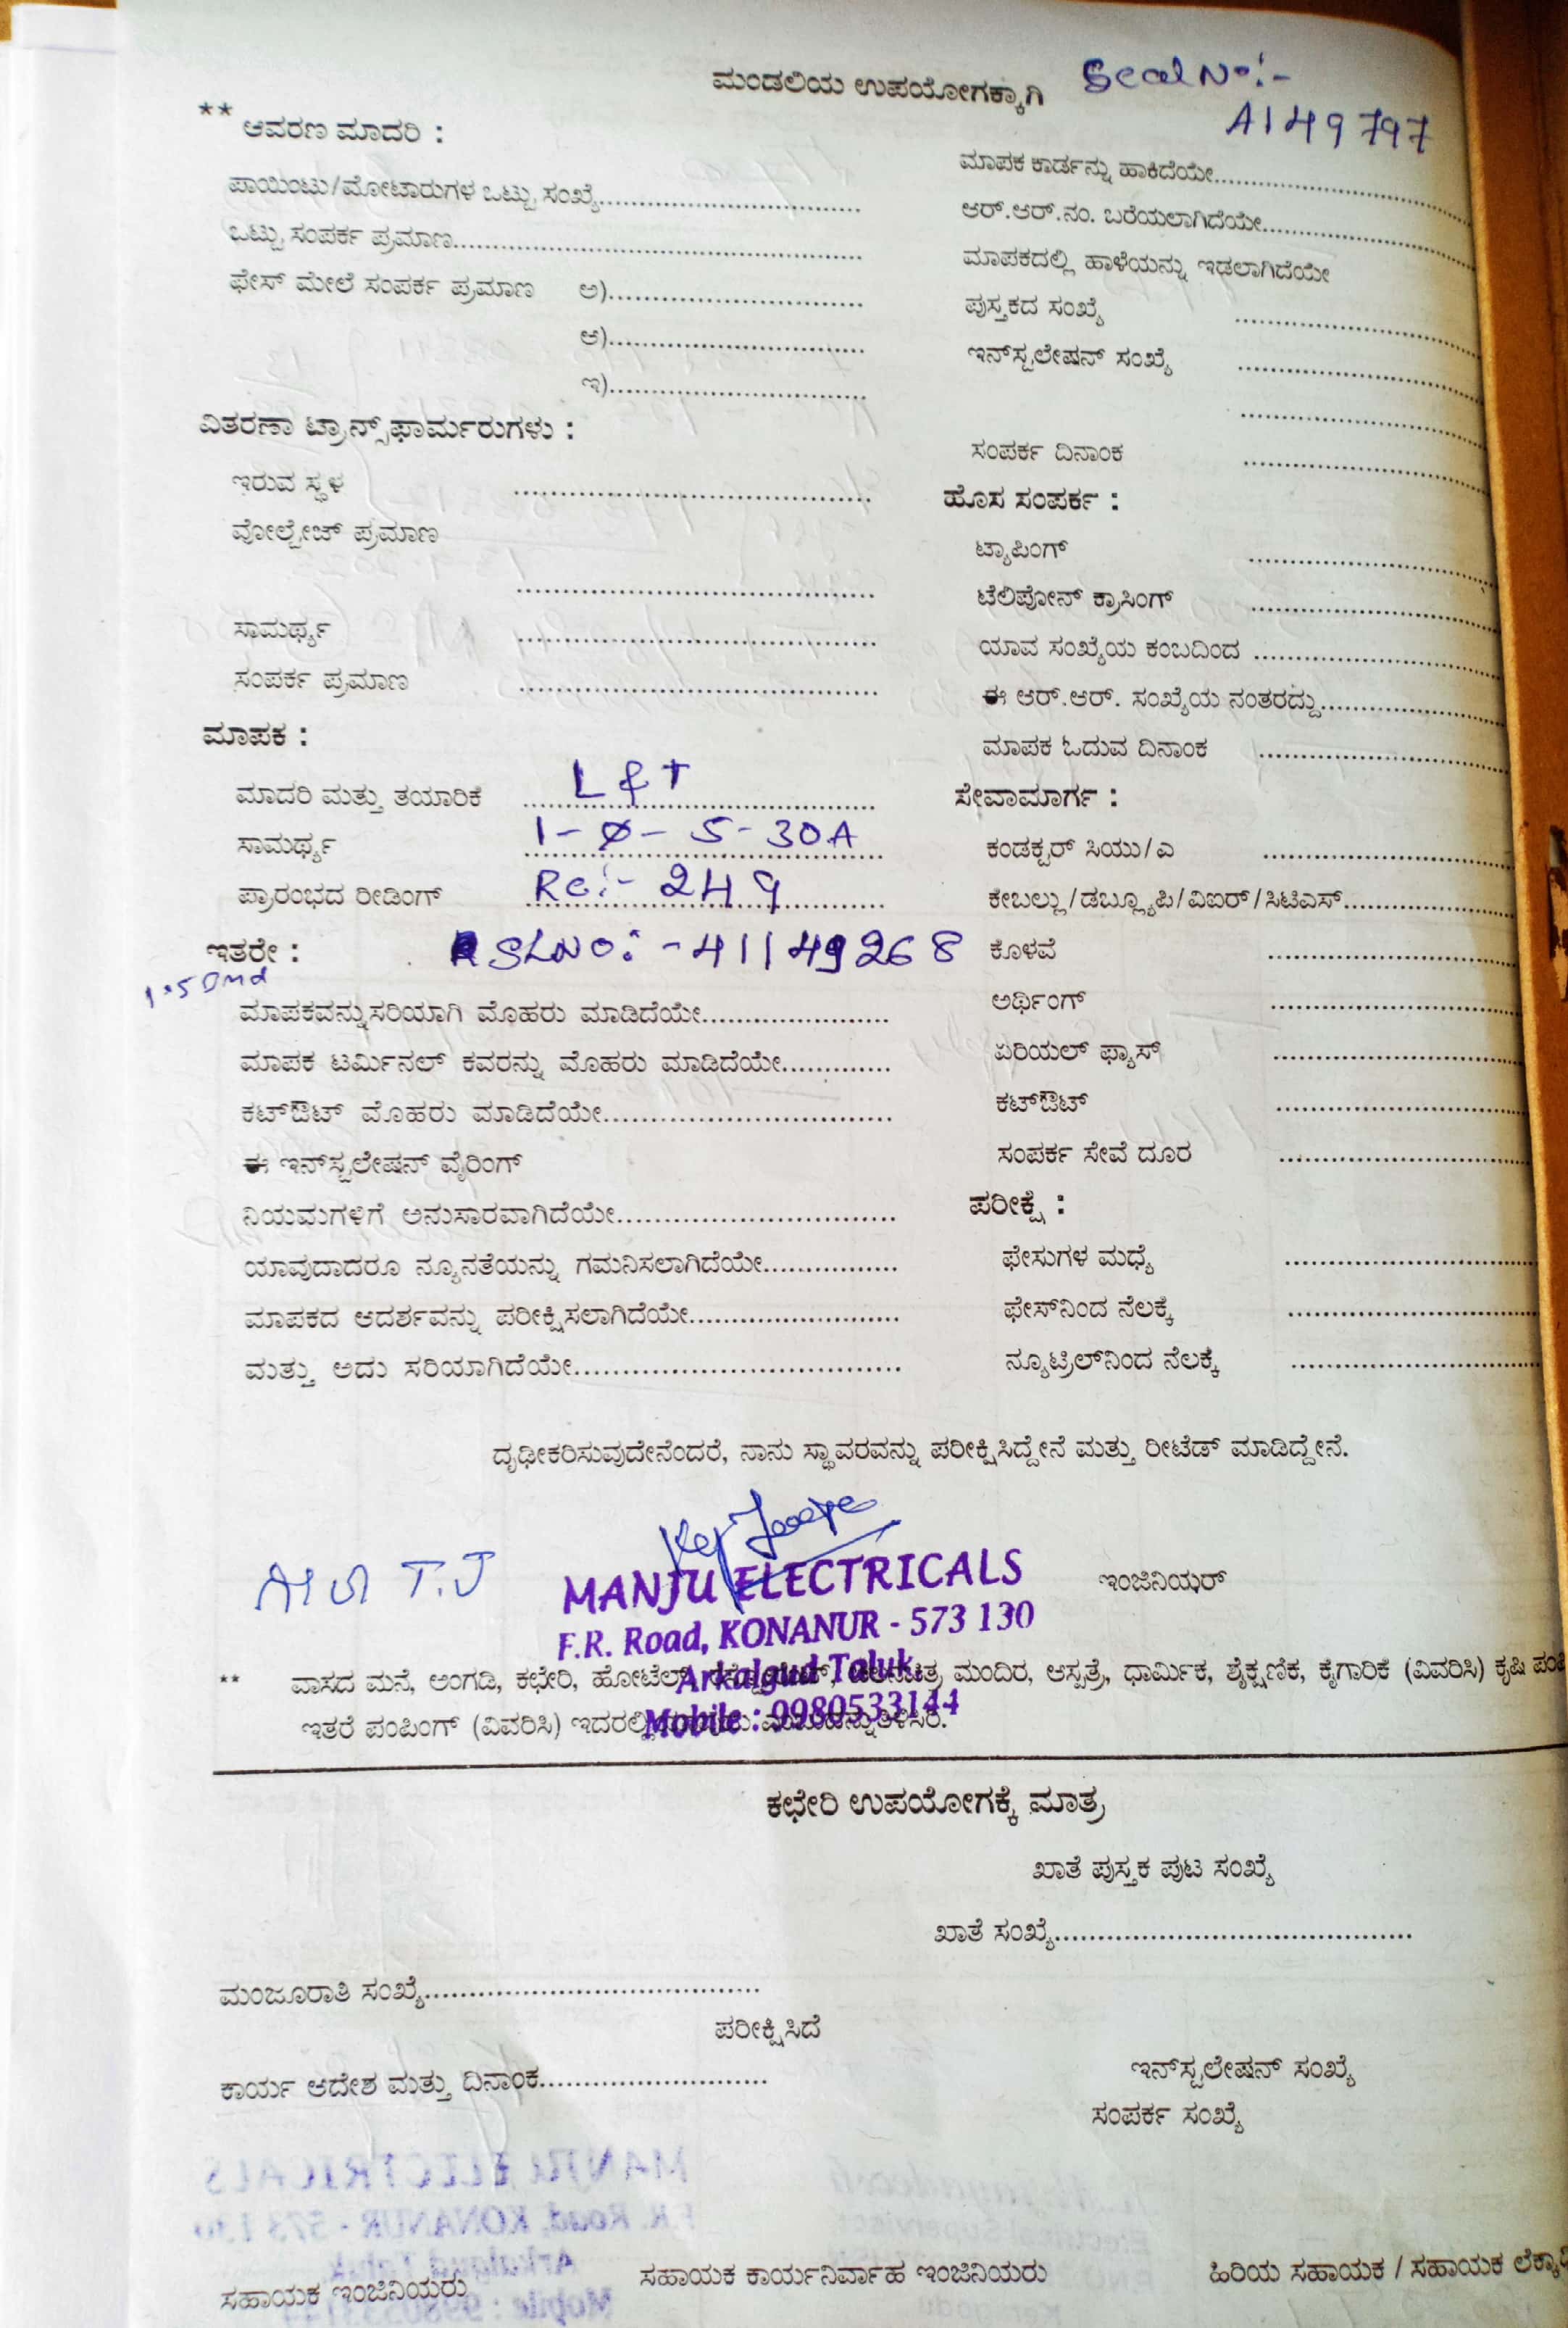 ಮಂಡಲಿಯ ಉಪಯೋಗಕ್ಕಾಗಿ
Seal No:-
A149797
** ಆವರಣ ಮಾದರಿ :
ಪಾಯಿಂಟು/ಮೋಟಾರುಗಳ ಒಟ್ಟು ಸಂಖ್ಯೆ
ಒಟ್ಟು ಸಂಪರ್ಕ ಪ್ರಮಾಣ
ಫೇಸ್ ಮೇಲೆ ಸಂಪರ್ಕ ಪ್ರಮಾಣ ಅ)
ಆ)
ಇ)
ವಿತರಣಾ ಟ್ರಾನ್ಸ್‌ಫಾರ್ಮರುಗಳು :
ಇರುವ ಸ್ಥಳ
ವೋಲ್ಟೇಜ್ ಪ್ರಮಾಣ
ಸಾಮರ್ಥ್ಯ
ಸಂಪರ್ಕ ಪ್ರಮಾಣ
ಮಾಪಕ :
ಮಾದರಿ ಮತ್ತು ತಯಾರಿಕೆ L & T
ಸಾಮರ್ಥ್ಯ 1-Ø-5-30A
ಪ್ರಾರಂಭದ ರೀಡಿಂಗ್ Re:- 249
ಇತರೇ : SLNO:-41149268
ಮಾಪಕವನ್ನು ಸರಿಯಾಗಿ ಮೊಹರು ಮಾಡಿದೆಯೇ
ಮಾಪಕ ಟರ್ಮಿನಲ್ ಕವರನ್ನು ಮೊಹರು ಮಾಡಿದೆಯೇ
ಕಟ್‌ಔಟ್ ಮೊಹರು ಮಾಡಿದೆಯೇ
ಈ ಇನ್‌ಸ್ಟಲೇಷನ್ ವೈರಿಂಗ್
ನಿಯಮಗಳಿಗೆ ಅನುಸಾರವಾಗಿದೆಯೇ
ಯಾವುದಾದರೂ ನ್ಯೂನತೆಯನ್ನು ಗಮನಿಸಲಾಗಿದೆಯೇ
ಮಾಪಕದ ಆದರ್ಶವನ್ನು ಪರೀಕ್ಷಿಸಲಾಗಿದೆಯೇ
ಮತ್ತು ಅದು ಸರಿಯಾಗಿದೆಯೇ
ಮಾಪಕ ಕಾರ್ಡನ್ನು ಹಾಕಿದೆಯೇ
ಆರ್.ಆರ್.ನಂ. ಬರೆಯಲಾಗಿದೆಯೇ
ಮಾಪಕದಲ್ಲಿ ಹಾಳೆಯನ್ನು ಇಡಲಾಗಿದೆಯೇ
ಪುಸ್ತಕದ ಸಂಖ್ಯೆ
ಇನ್‌ಸ್ಟಲೇಷನ್ ಸಂಖ್ಯೆ
ಸಂಪರ್ಕ ದಿನಾಂಕ
ಹೊಸ ಸಂಪರ್ಕ :
ಟ್ಯಾಪಿಂಗ್
ಟೆಲಿಪೋನ್ ಕ್ರಾಸಿಂಗ್
ಯಾವ ಸಂಖ್ಯೆಯ ಕಂಬದಿಂದ
ಈ ಆರ್.ಆರ್. ಸಂಖ್ಯೆಯ ನಂತರದ್ದು
ಮಾಪಕ ಓದುವ ದಿನಾಂಕ
ಸೇವಾಮಾರ್ಗ :
ಕಂಡಕ್ಟರ್ ಸಿಯು/ಎ
ಕೇಬಲ್ಲು/ಡಬ್ಲ್ಯೂಪಿ/ವಿಐರ್/ಸಿಟಿಎಸ್
ಕೊಳವೆ
ಅರ್ಥಿಂಗ್
ಏರಿಯಲ್ ಫ್ಯಾಸ್
ಕಟ್‌ಔಟ್
ಸಂಪರ್ಕ ಸೇವೆ ದೂರ
ಪರೀಕ್ಷೆ :
ಫೇಸುಗಳ ಮಧ್ಯೆ
ಫೇಸ್‌ನಿಂದ ನೆಲಕ್ಕೆ
ನ್ಯೂಟ್ರಿಲ್‌ನಿಂದ ನೆಲಕ್ಕೆ
ದೃಢೀಕರಿಸುವುದೇನೆಂದರೆ, ನಾನು ಸ್ಥಾವರವನ್ನು ಪರೀಕ್ಷಿಸಿದ್ದೇನೆ ಮತ್ತು ರೀಟೆಡ್ ಮಾಡಿದ್ದೇನೆ.
MANJU ELECTRICALS
F.R. Road, KONANUR - 573 130
Arkalgud Taluk
Mobile : 9980533144
ಇಂಜಿನಿಯರ್
** ವಾಸದ ಮನೆ, ಅಂಗಡಿ, ಕಛೇರಿ, ಹೋಟೆಲ್, ಮಂದಿರ, ಆಸ್ಪತ್ರೆ, ಧಾರ್ಮಿಕ, ಶೈಕ್ಷಣಿಕ, ಕೈಗಾರಿಕೆ (ವಿವರಿಸಿ) ಕೃಷಿ
ಇತರೆ ಪಂಪಿಂಗ್ (ವಿವರಿಸಿ) ಇದರಲ್ಲಿ
ಕಛೇರಿ ಉಪಯೋಗಕ್ಕೆ ಮಾತ್ರ
ಖಾತೆ ಪುಸ್ತಕ ಪುಟ ಸಂಖ್ಯೆ
ಖಾತೆ ಸಂಖ್ಯೆ
ಮಂಜೂರಾತಿ ಸಂಖ್ಯೆ
ಪರೀಕ್ಷಿಸಿದೆ
ಕಾರ್ಯ ಆದೇಶ ಮತ್ತು ದಿನಾಂಕ
ಇನ್‌ಸ್ಟಲೇಷನ್ ಸಂಖ್ಯೆ
ಸಂಪರ್ಕ ಸಂಖ್ಯೆ
ಸಹಾಯಕ ಇಂಜಿನಿಯರು
ಸಹಾಯಕ ಕಾರ್ಯನಿರ್ವಾಹ ಇಂಜಿನಿಯರು
ಹಿರಿಯ ಸಹಾಯಕ / ಸಹಾಯಕ